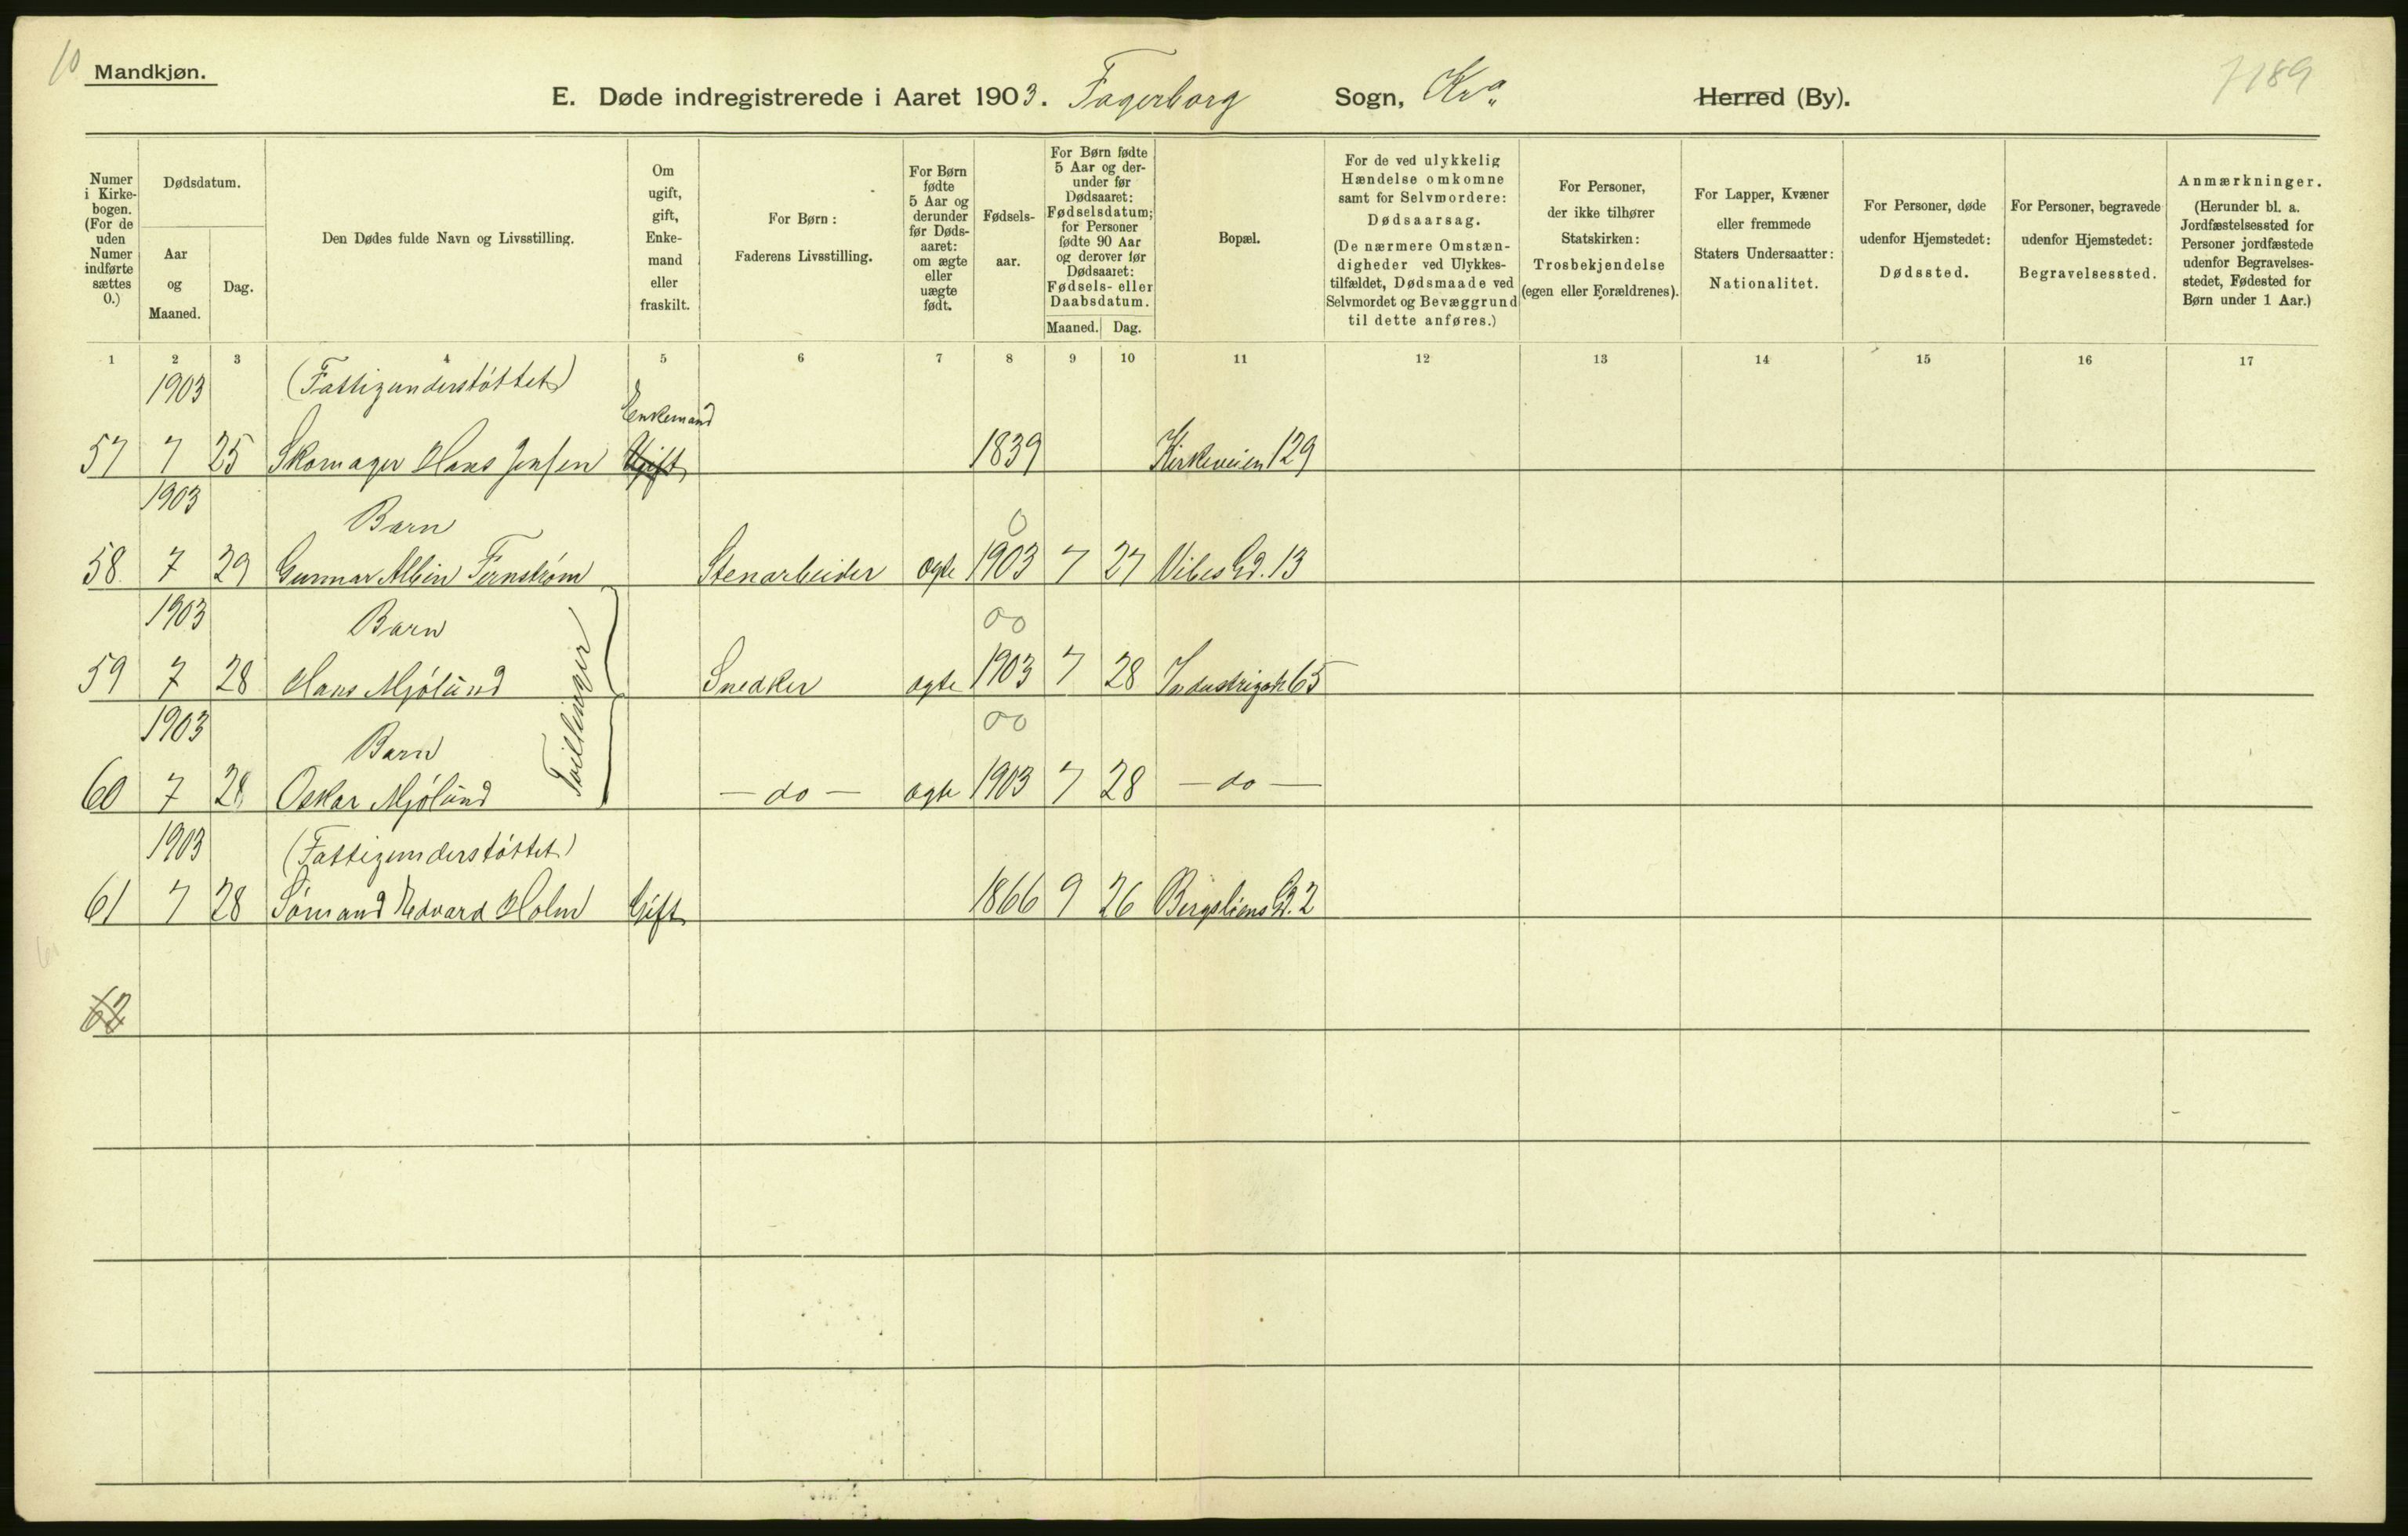 10
Mandkjøn.
7189
E. Døde indregistrerede i Aaret 1903. Fagerborg Sogn, Kra Herred (By).
Numer i Kirke-bogen. (For de uden Numer indførte sættes 0.)
Dødsdatum.
Aar og Maaned.
Dag.
Den Dødes fulde Navn og Livsstilling.
Om ugift, gift, Enke-mand eller fraskilt.
For Børn: Faderens Livsstilling.
For Børn fødte 5 Aar og derunder før Døds-aaret: om ægte eller uægte født.
Fødsels-aar.
For Børn fødte 5 Aar og der-under før Dødsaaret: Fødselsdatum; for Personer fødte 90 Aar og derover før Dødsaaret: Fødsels- eller Daabsdatum.
Maaned. Dag.
Bopæl.
For de ved ulykkelig Hændelse omkomne samt for Selvmordere: Dødsaarsag. (De nærmere Omstæn-digheder ved Ulykkes-tilfældet, Dødsmaade ved Selvmordet og Bevæggrund til dette anføres.)
For Personer, der ikke tilhører Statskirken: Trosbekjendelse (egen eller Forældrenes).
For Lapper, Kvæner eller fremmede Staters Undersaatter: Nationalitet.
For Personer, døde udenfor Hjemstedet: Dødssted.
For Personer, begravede udenfor Hjemstedet: Begravelsessted.
Anmærkninger. (Herunder bl. a. Jordfæstelsessted for Personer jordfæstede udenfor Begravelses-stedet, Fødested for Børn under 1 Aar.)
1 2 3 4 5 6 7 8 9 10 11 12 13 14 15 16 17
1903 (Fattigunderstøttet) Enkemand
57 7 25 Skomager Hans Jensen Ugift 1839 Kirkeveien 129
1903 Barn 0
58 7 29 Gunnar Albin Fernstrøm Stenarbeider ægte 1903 7 27 Vibes Gd. 13
1903 Barn 00
59 7 28 Hans Mjølund Snedker ægte 1903 7 28 Industrigdt 65
Tvillinger
1903 Barn 00
60 7 28 Oskar Mjølund — do — ægte 1903 7 28 — do —
1903 (Fattigunderstøttet)
61 7 28 Sømand Edvard Holm Gift 1866 9 26 Bergsliens Gd. 2
61
62